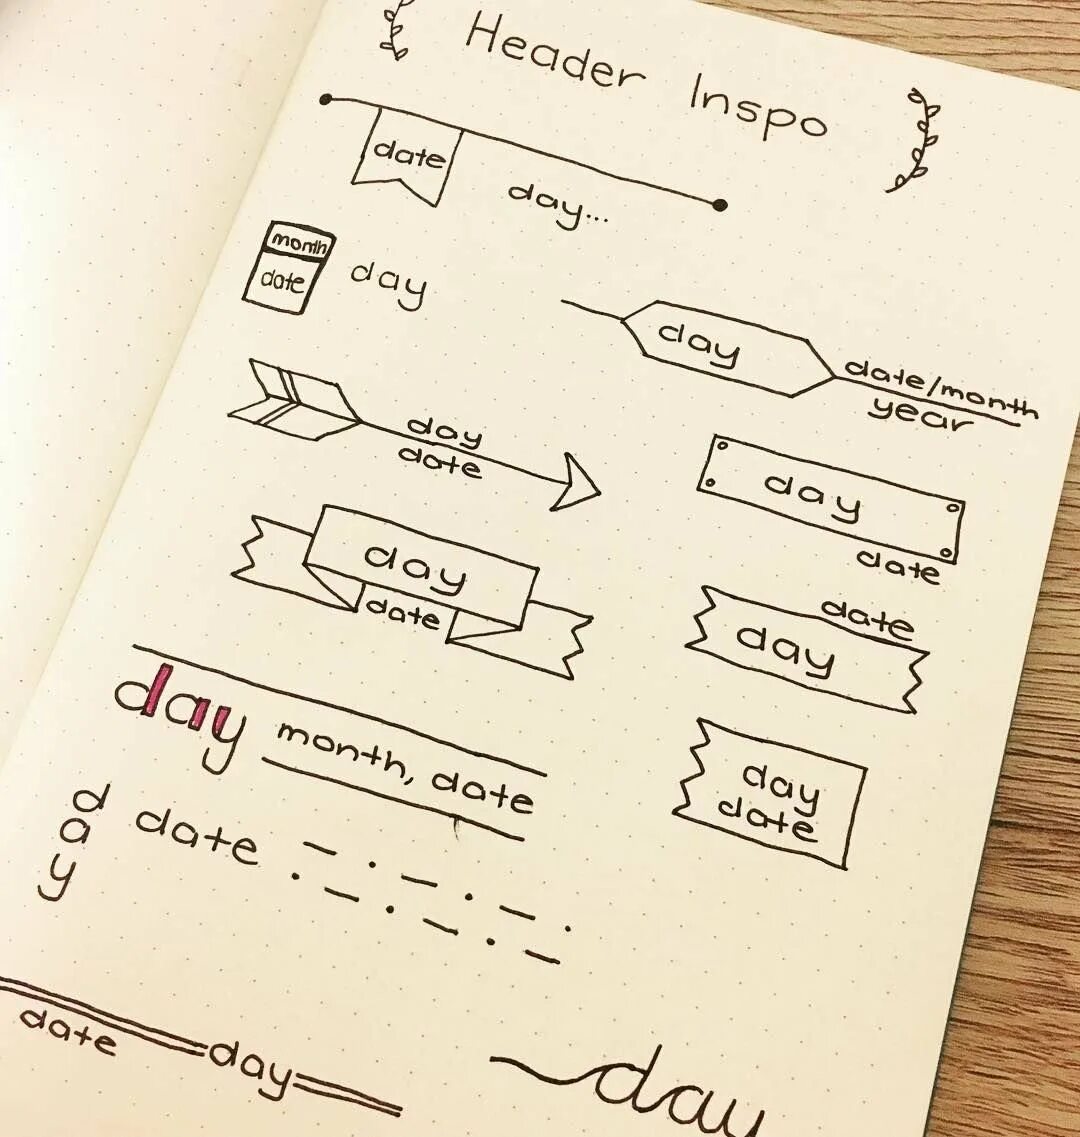 Header Inspo
date
day...
month
date
day
day
date/month
year
day
date
day
date
day
date
date
day
day
month, date
day
date
day
date
date
day
day